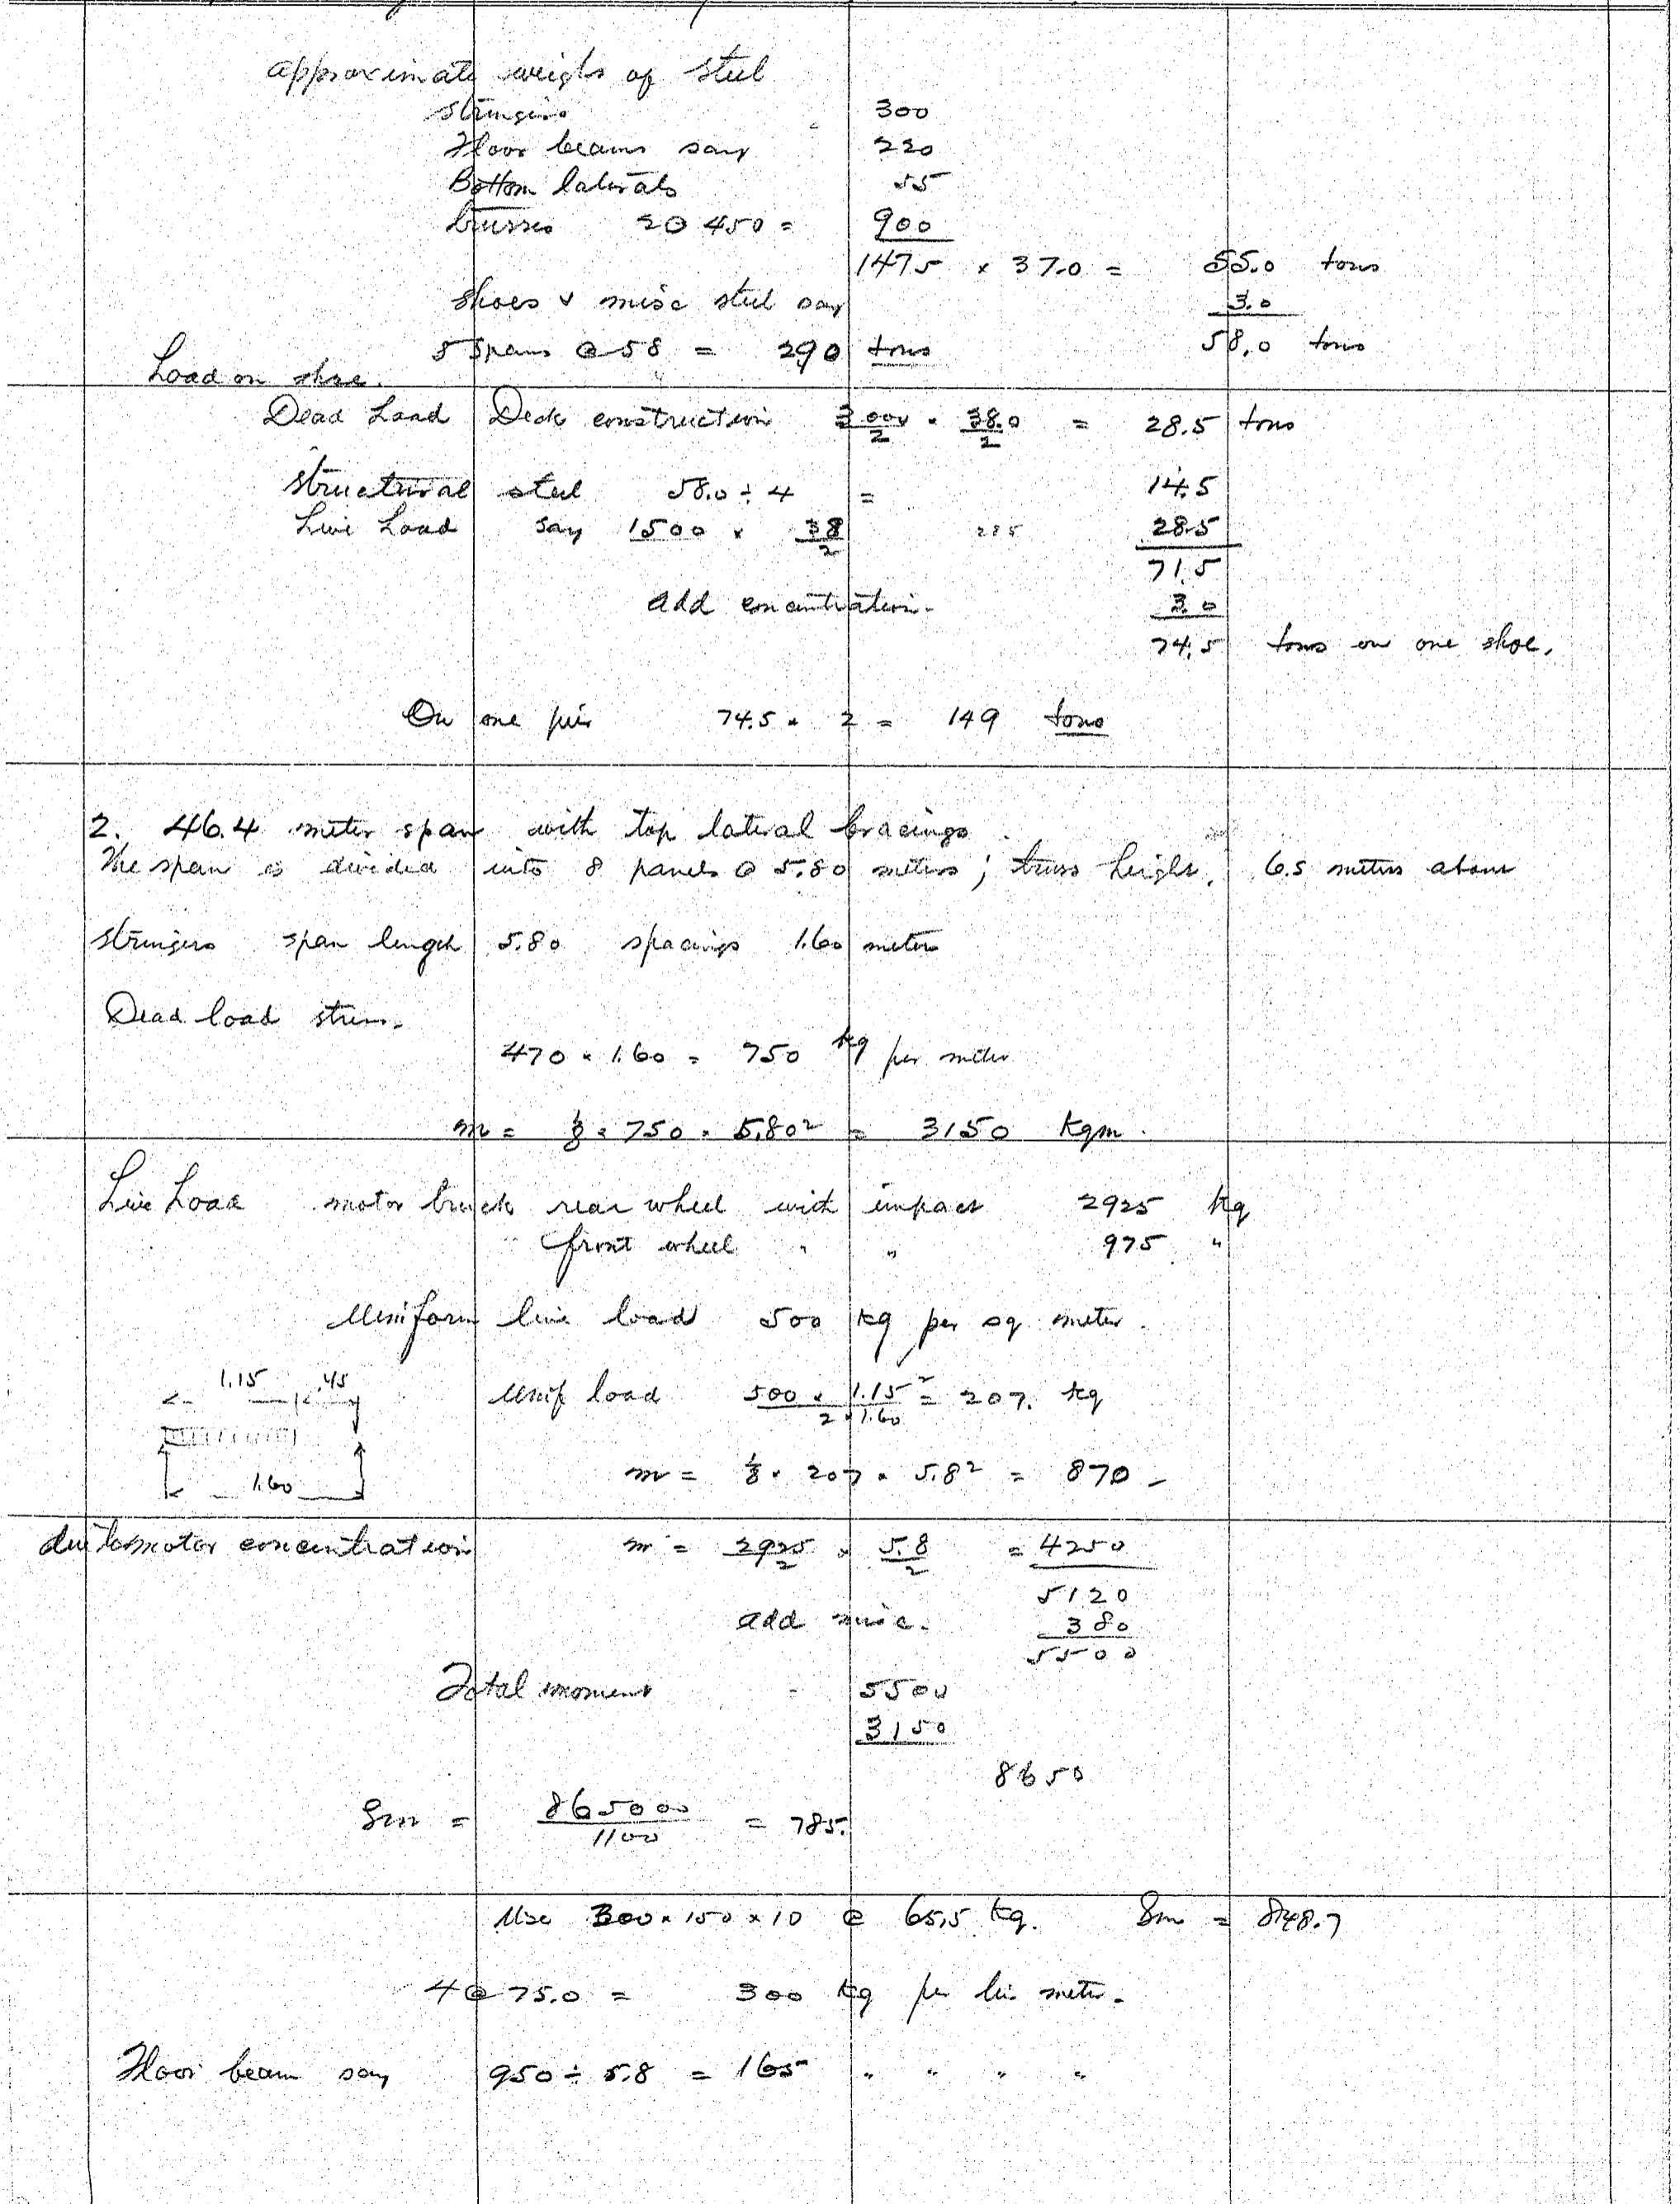 approximate weight of steel
Stringers 300
Floor beams say 220
Bottom laterals 55
trusses 2@ 450 = 900
1475 × 37.0 = 55.0 tons
Shoes & misc steel say 3.0
58.0 tons
5 Spans @ 58 = 290 tons
Load on shoe.
Dead Load Deck construction 3000/2 × 38.0/2 = 28.5 tons
Structural steel 58.0 ÷ 4 = 14.5
Live Load say 1500 × 38/2 285 28.5
71.5
add concentration. 3.0
74.5 tons on one shoe.
On one pier 74.5 × 2 = 149 tons
2. 46.4 meter span with top lateral bracings
The span is divided into 8 panels @ 5.80 meters; truss height, 6.5 meters about
Stringers span length 5.80 spacings 1.60 meters
Dead load stress.
470 × 1.60 = 750 kg per meter
m = 1/8 × 750 × 5.80² = 3150 kgm.
Live Load motor truck rear wheel with impact 2925 kg
front wheel " " 975 "
Uniform live load 500 kg per sq meter.
1.15 .45
Unif load 500 × 1.15²/2 × 1.60 = 207. kg
1.60
m = 1/8 × 207 × 5.8² = 870
automotor concentration m = 2925/2 × 5.8/2 = 4250
5120
add misc. 380
5500
Total moment 5500
3150
8650
Sm = 865000/1100 = 785.
Use 300 × 150 × 10 @ 65.5 kg. Sm = 848.7
4 @ 75.0 = 300 kg per lin meter.
Floor beam say 950 ÷ 5.8 = 165 " " " "